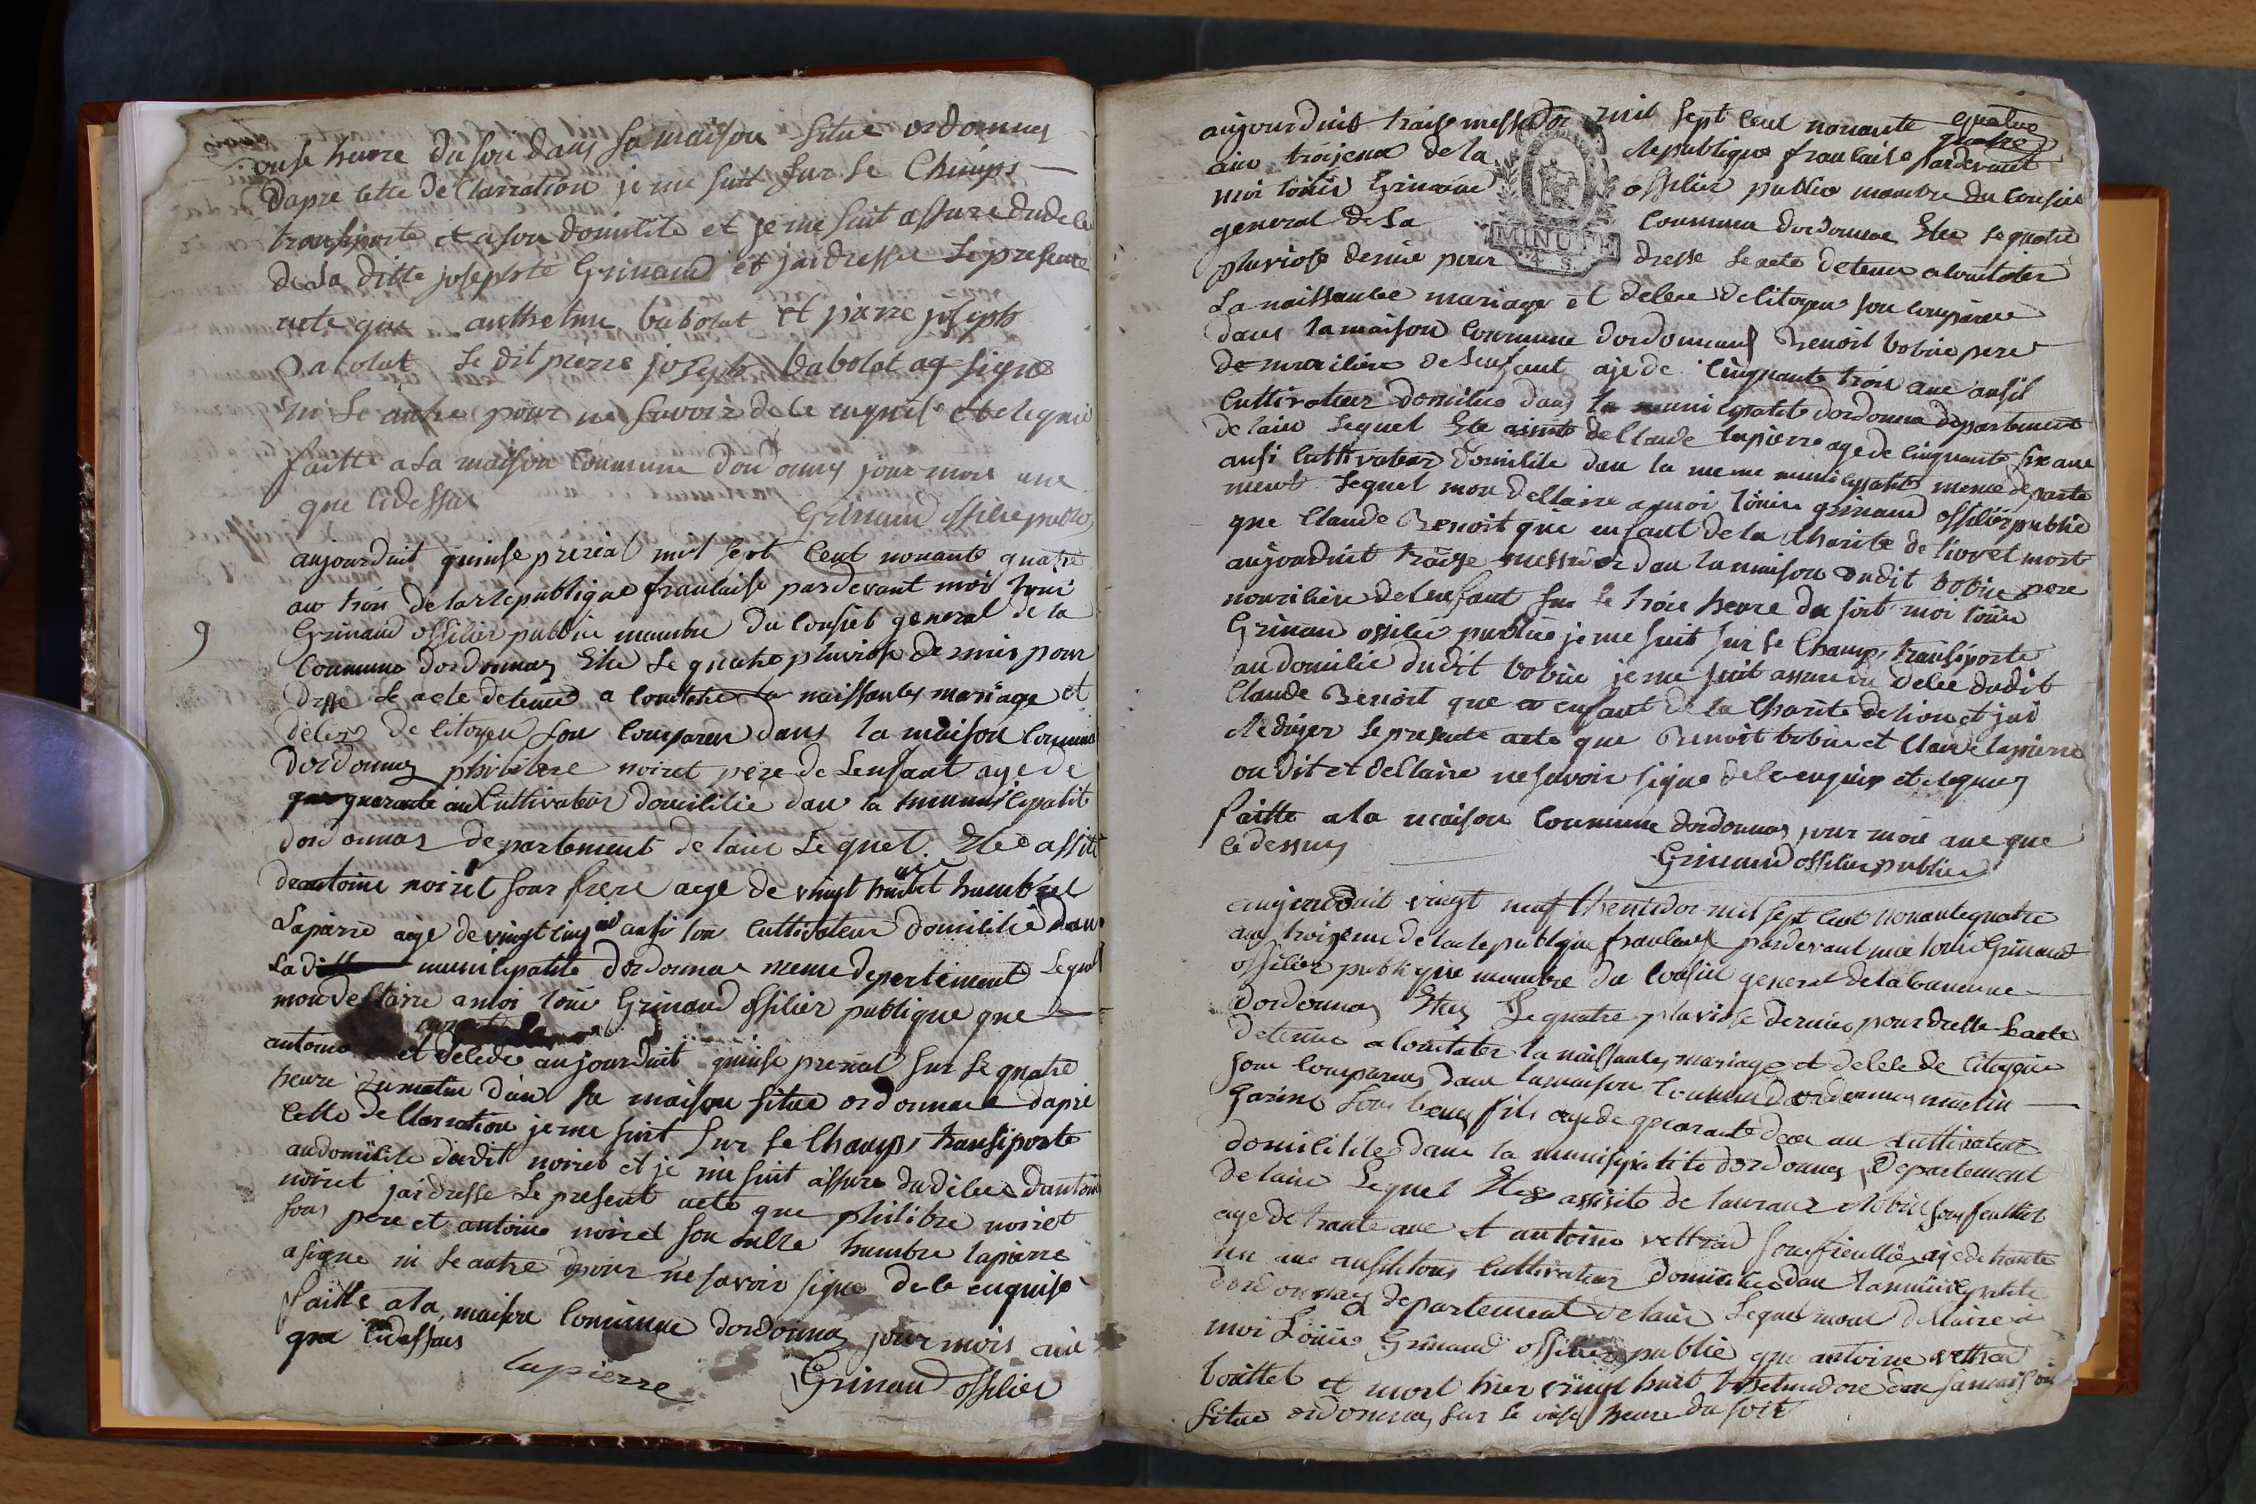 onse heure du soir dans sa maison situé ordonnas
dapre cette declarration je me suit sur le Champs
transporte et a son domicile et je me suit assure dudele
de la ditte josephte Grinand et jai dresse le presente
acte que anthelme babolat et pierre joseph
babolat le dit pierre joseph babolat aq signe
ni le autre pour ne savoir de le enquise et lequi
faitte a la maison Commune dordonnas jour mois ane
que cidessus
Grinand officie public
aujourduit quinse prerial mil sept Cent nonante quatre
au troi de la republique francaise pardevant moi loui
Grinand officier public mambre du Conseil general de la
9
Commune dordonnas Elue le quatre pluviose dernier pour
dresse le acte detenu a constater la naissantes mariage et
deles de citoyen son Comparru dans la maison Commune
dordonnas philibere noiret pere de lenfant age de
quarante an Cultivateur domicilié dan la municipalité
dordonnas departement de lain lequel Etée assité
de antoine noiret sour frere age de vingt huit humbret
lapierre age de vingt cinq an ausi tou Cultivateur domicilié dans
la municipalité dordonnas meme departement lequel
mon declaire a moi loui Grinand officier publique que
antoine et delede aujourduit quinse prerial sur le quatre
heure du matin dan sa maison situe ordonnas dapre
cette declarration je me suit sur le Champs transporte
audomicile dudit noiret et je me suit assure dudeles dantoine
noiret jai dresse le present acte que philibre noiret
sous pere et antoine noiret son humbre lapierre
a signe ni le autre pour ne savoir signe de le enquise
faitte a la maison Commune dordonnas jour mois ane
que cidessus
lapierre
Grinand officier
aujourduit traise messidor mil sept Cent nonante quatre
quatre
ain troijeme de la republique francaise pardevant
moi louis Grinand officier public mambre du Conseil
general de la Commune dordonnas Elue le quatre
MINUTE
4 S.
pluviose dernie pour dresse le acte detenu a Constater
la naissantee mariage et delece de citoyen son Comparu
dans la maison Commune dordonnas Benoit bobin pere
de nouriliere de lenfant aje de Cinquante trois ane ausit
Cultivateur domilie dans la municipalité dordonnas departement
de lain lequel Ete assite de Claude lapierre age de Cinquante six ane
ausi Cultivateur domicile dan la meme municipalité meme departe
ment lequel mon declaire a moi louis grinand officier public
que Claude Benoit que enfant de la charite de lion et mort
aujourduit traize messidor dan la maison dudit bobin pere
nouriliere de lenfant sur le trois heure du soit moi louis
Grinand officié public je me suit sur le Champs transporte
au domicilie dudit bobin je me suit assure du dele dudit
Claude Benoit que enfant de la Charite de lion et jai
rediger le presente acte que Benoit bobin et Claude lapierre
on dit et declaire ne savoir signe de le enquis et lequis
faitte a la maison Commune dordonnas jour mois ane que
cidessus
Grinand officier public
aujourduit vingt neuf thermidor mil sept Cent nonante quatre
au troijeme de la republique francaise pardevant moi louis Grinand
officier publique mambre du Conseil general de la Commune
dordonnas Elue le quatre pluviose dernier pour dresse le acte
detenu a Constater la naissantes mariage et delele de citoyen
son Comparus dans la maison Commune dordonnas martin
Garin sou beau fils age de quarante deux an Cultivateur
domicilie dans la municipalité dordonnas departement
de lain lequel Etee assiste de
age de trante ane et antoine vettrad age de trante
un ane ausit tous Cultivateur domicilies dan la municipalité
dordonnas departement de lain lequel mon declaire a
moi Louis Grinand officier public que antoine vettrad
et mort hier vingt huit thermidore dan sa maison
situe ordonnas sur le heure du soit